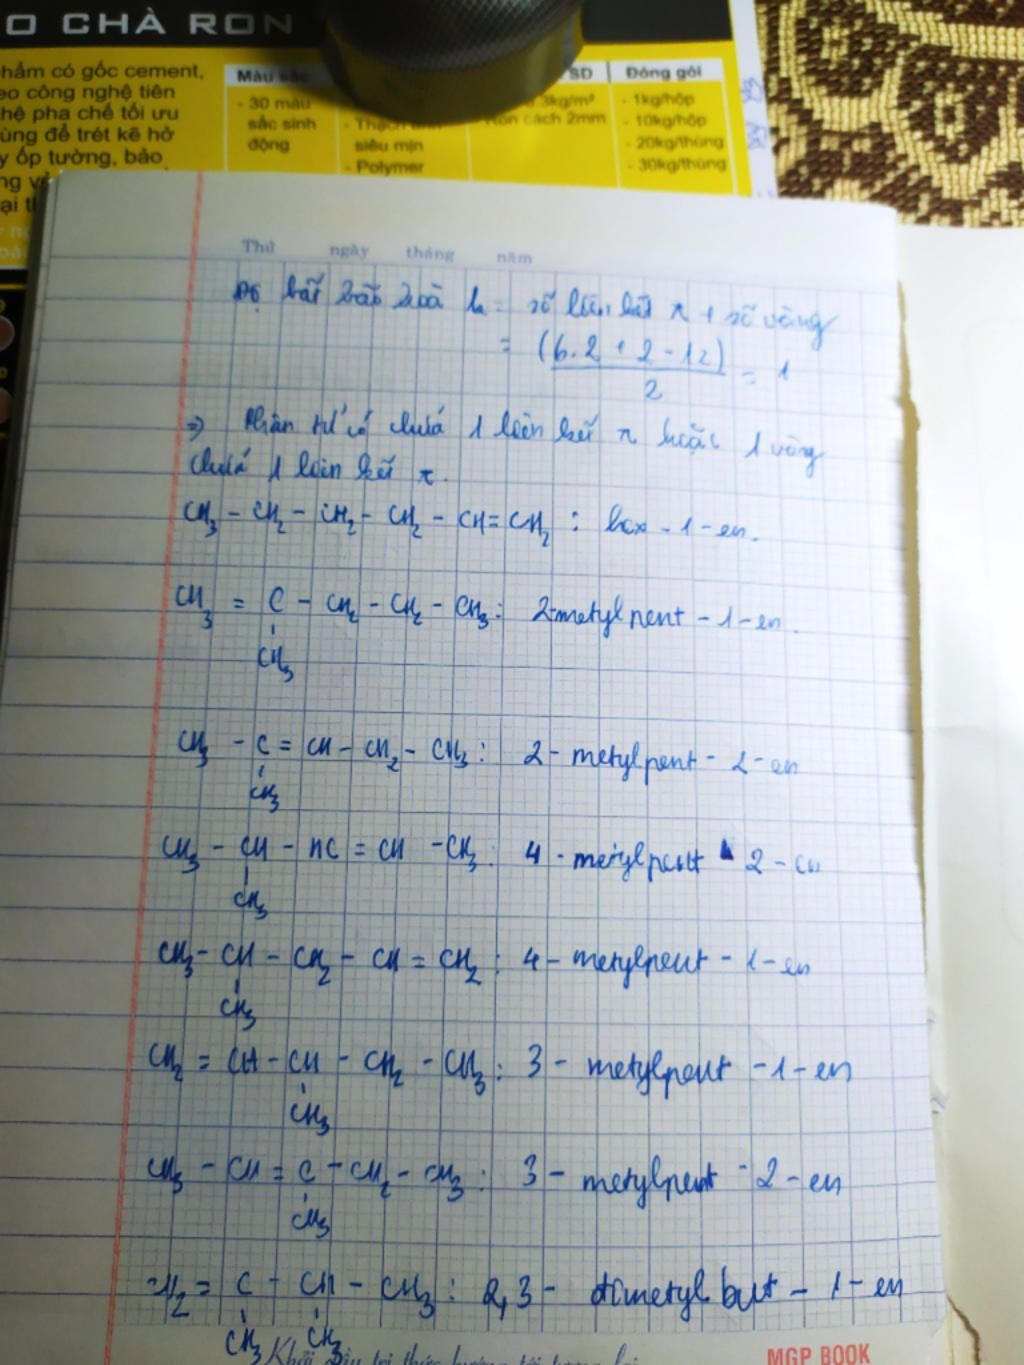 O CHÀ RON
hẩm có gốc cement,
eo công nghệ tiên
hệ pha chế tối ưu
ùng để trét kẽ hở
y ốp tường, bảo
Màu sắc
- 30 màu
sắc sinh
động
siêu mịn
- Polymer
SD
3kg/m²
cách 2mm
Đóng gói
- 1kg/hộp
- 10kg/hộp
- 20kg/thùng
- 30kg/thùng
Thứ ngày tháng năm
Độ bất bão hoà k = số liên kết π + số vòng
= (6.2 + 2 - 12) / 2 = 1
=> Phân tử có chứa 1 liên kết π hoặc 1 vòng
chứa 1 liên kết π.
CH3 - CH2 - CH2 - CH2 - CH = CH2 : hex - 1 - en.
CH3 = C - CH2 - CH2 - CH3 : 2-metylpent - 1 - en.
CH3
CH3 - C = CH - CH2 - CH3 : 2 - metylpent - 2 - en
CH3
CH3 - CH - HC = CH - CH3 : 4 - metylpent - 2 - en
CH3
CH3 - CH - CH2 - CH = CH2 : 4 - metylpent - 1 - en
CH3
CH2 = CH - CH - CH2 - CH3 : 3 - metylpent - 1 - en
CH3
CH3 - CH = C - CH2 - CH3 : 3 - metylpent - 2 - en
CH3
CH2 = C - CH - CH3 : 2,3 - đimetyl but - 1 - en
CH3 CH3
MGP BOOK